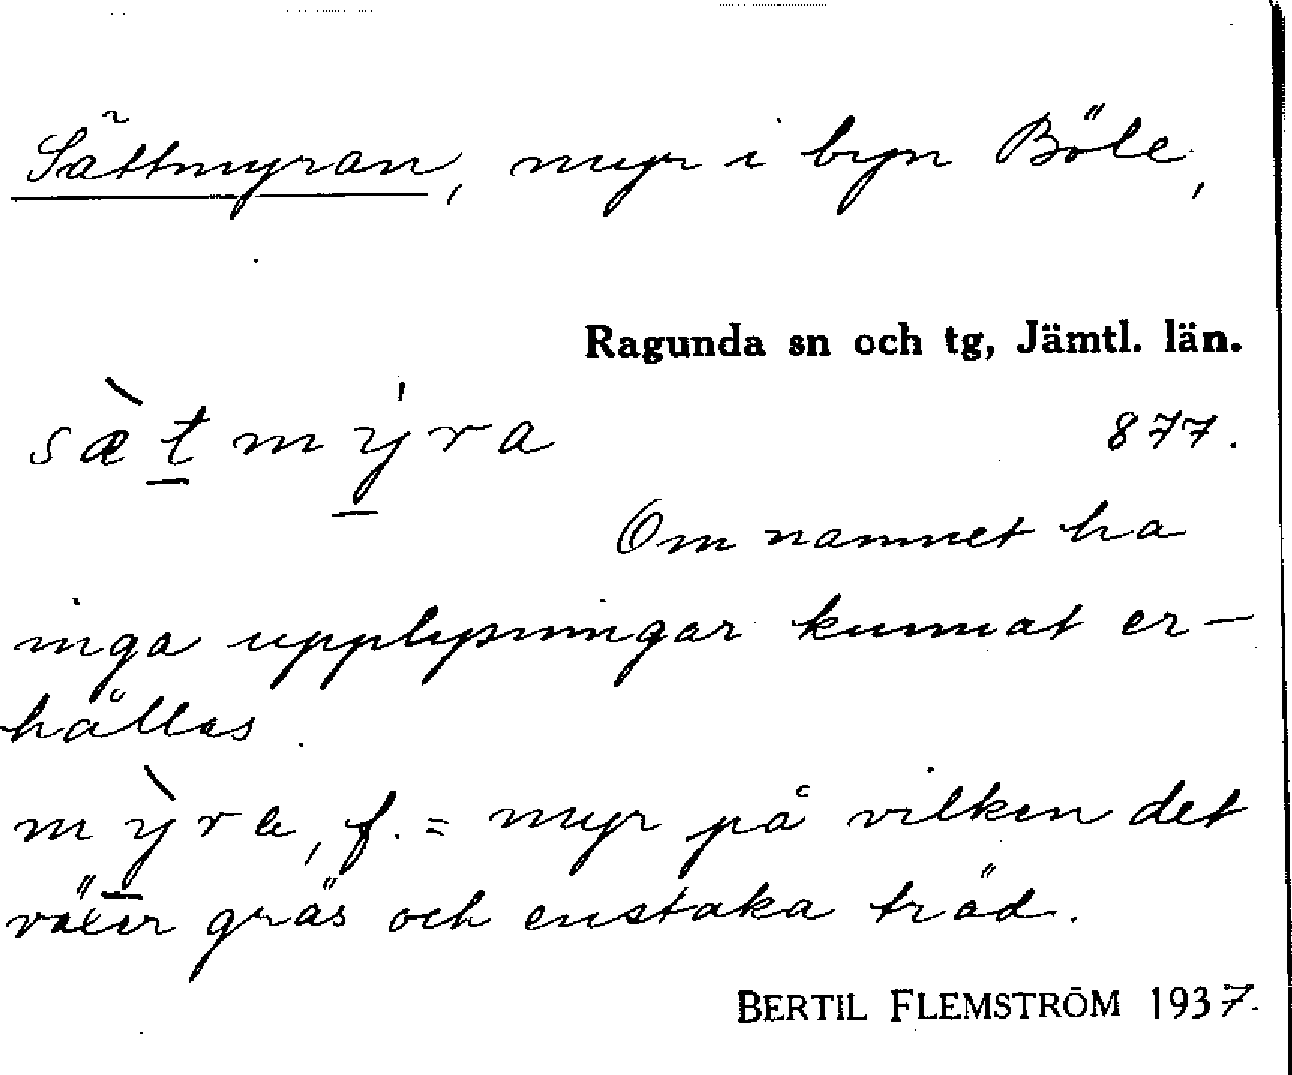 Sättmyran, myr i byn Böle,
Ragunda sn och tg, Jämtl. län.
sæ̀t̲mý̲ra
877.
Om namnet ha
inga upplysningar kunnat er-
hållas.
mỳ̲ra, f. = myr på vilken det
växer gräs och enstaka träd.
BERTIL FLEMSTRÖM 1937.